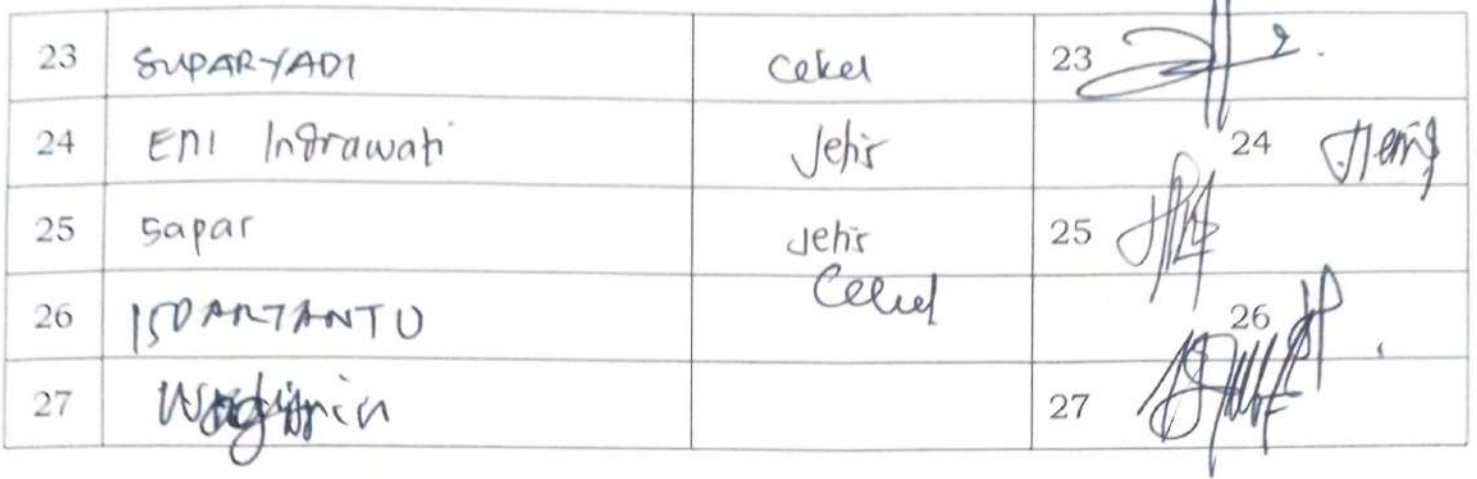 23 SUPARYADI Cekel 23
24 ENI Indrawati Jetis 24
25 Sapar Jetis 25
26 ISDARTANTO Cekel 26
27 27